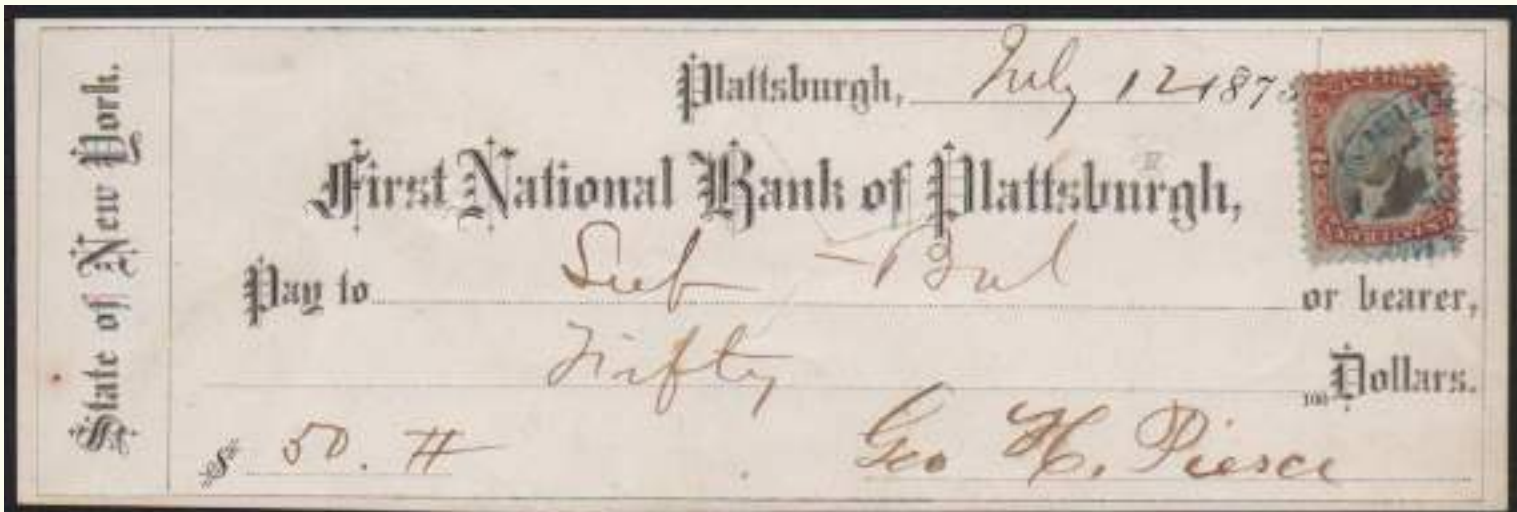 State of New York.
Plattsburgh, July 12 187
First National Bank of Plattsburgh,
Pay to or bearer,
Fifty 100 Dollars.
$ 50. #
Geo H. Pierce